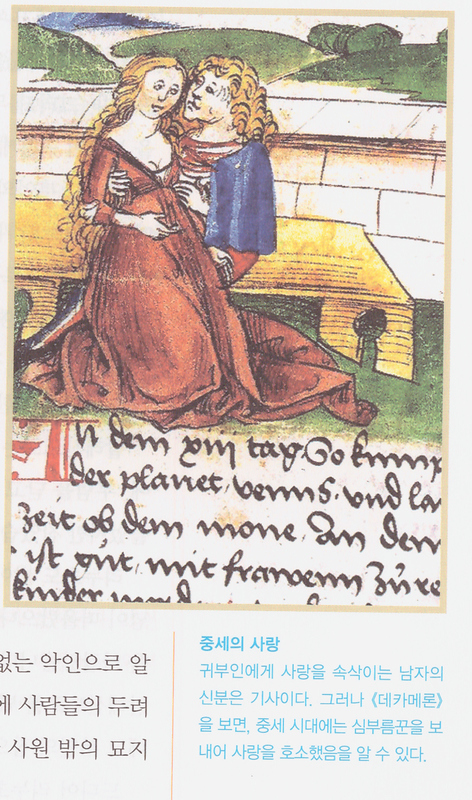 n dem xiii tag So kump
der planet venus und la
zeit ob dem mone An dem
ist gut mit frawenn zu re
kinder
없는 악인으로 알
에 사람들의 두려
사원 밖의 묘지
중세의 사랑
귀부인에게 사랑을 속삭이는 남자의
신분은 기사이다. 그러나 《데카메론》
을 보면, 중세 시대에는 심부름꾼을 보
내어 사랑을 호소했음을 알 수 있다.